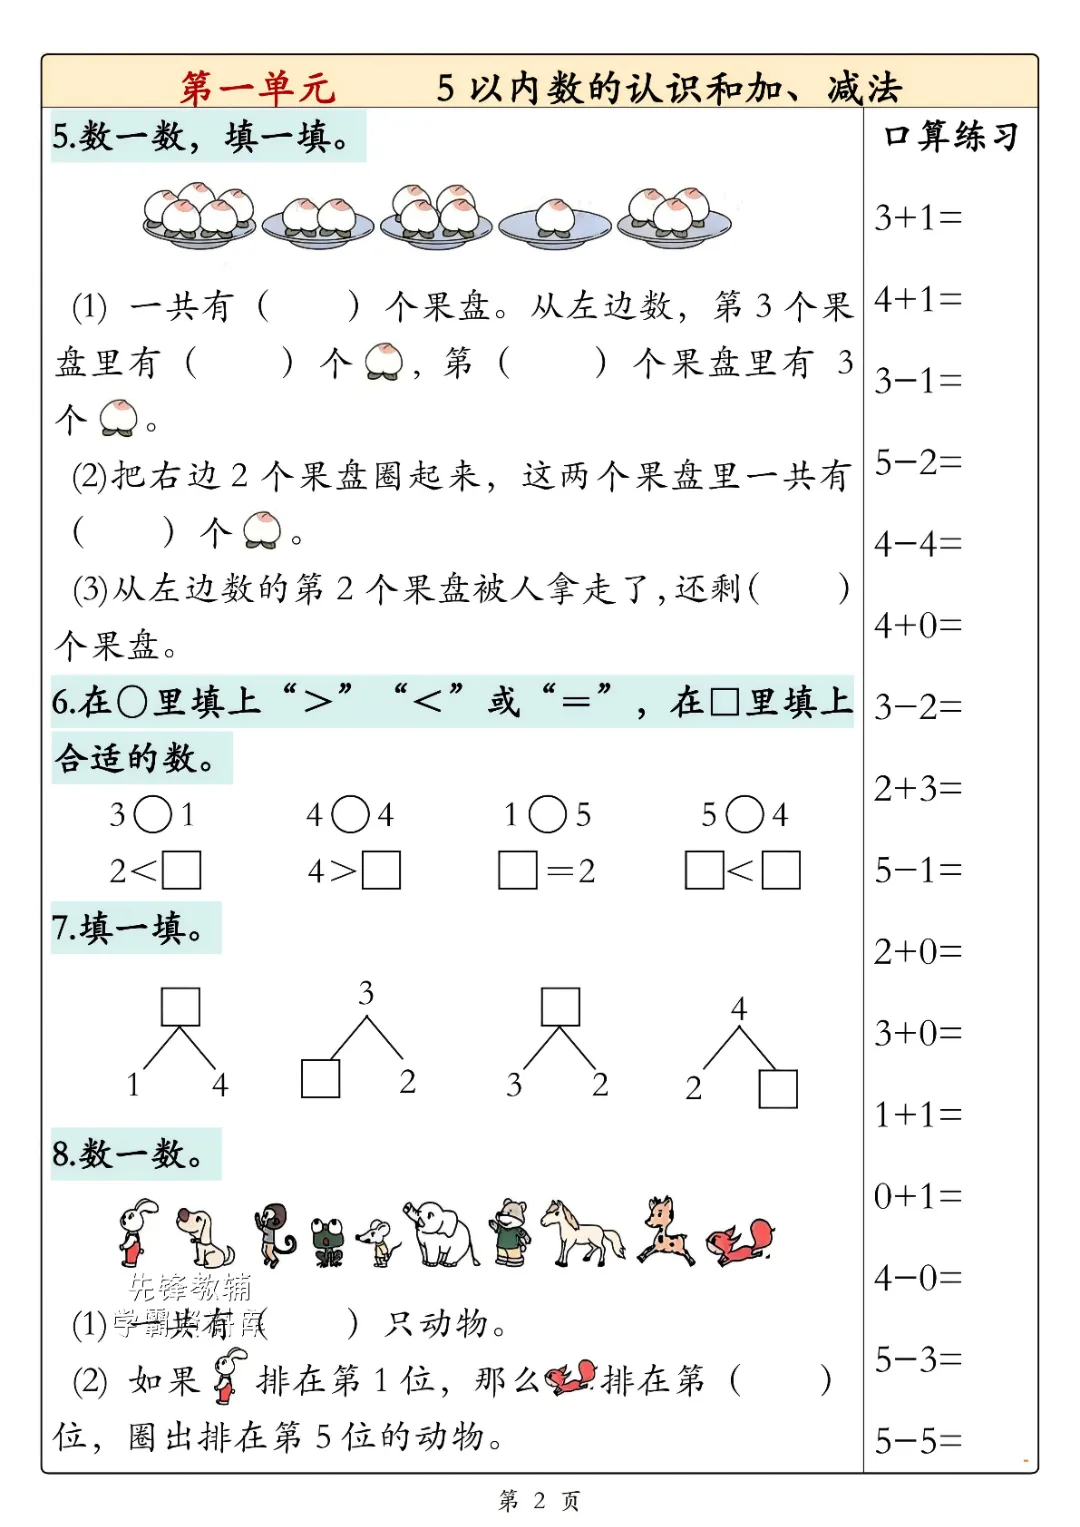 第一单元 5以内数的认识和加、减法
5.数一数，填一填。
(1) 一共有（ ）个果盘。从左边数，第3个果
盘里有（ ）个 ，第（ ）个果盘里有 3
个 。
(2)把右边2个果盘圈起来，这两个果盘里一共有
（ ）个 。
(3)从左边数的第2个果盘被人拿走了,还剩( )
个果盘。
6.在○里填上“＞”“＜”或“＝”，在□里填上
合适的数。
3○1 4○4 1○5 5○4
2＜□ 4＞□ □＝2 □＜□
7.填一填。
□ 3 □ 4
1 4 □ 2 3 2 2 □
8.数一数。
先锋教辅
学霸资料库
(1) 一共有（ ）只动物。
(2) 如果 排在第1位，那么 排在第（ ）
位，圈出排在第5位的动物。
口算练习
3+1=
4+1=
3−1=
5−2=
4−4=
4+0=
3−2=
2+3=
5−1=
2+0=
3+0=
1+1=
0+1=
4−0=
5−3=
5−5=
第 2 页